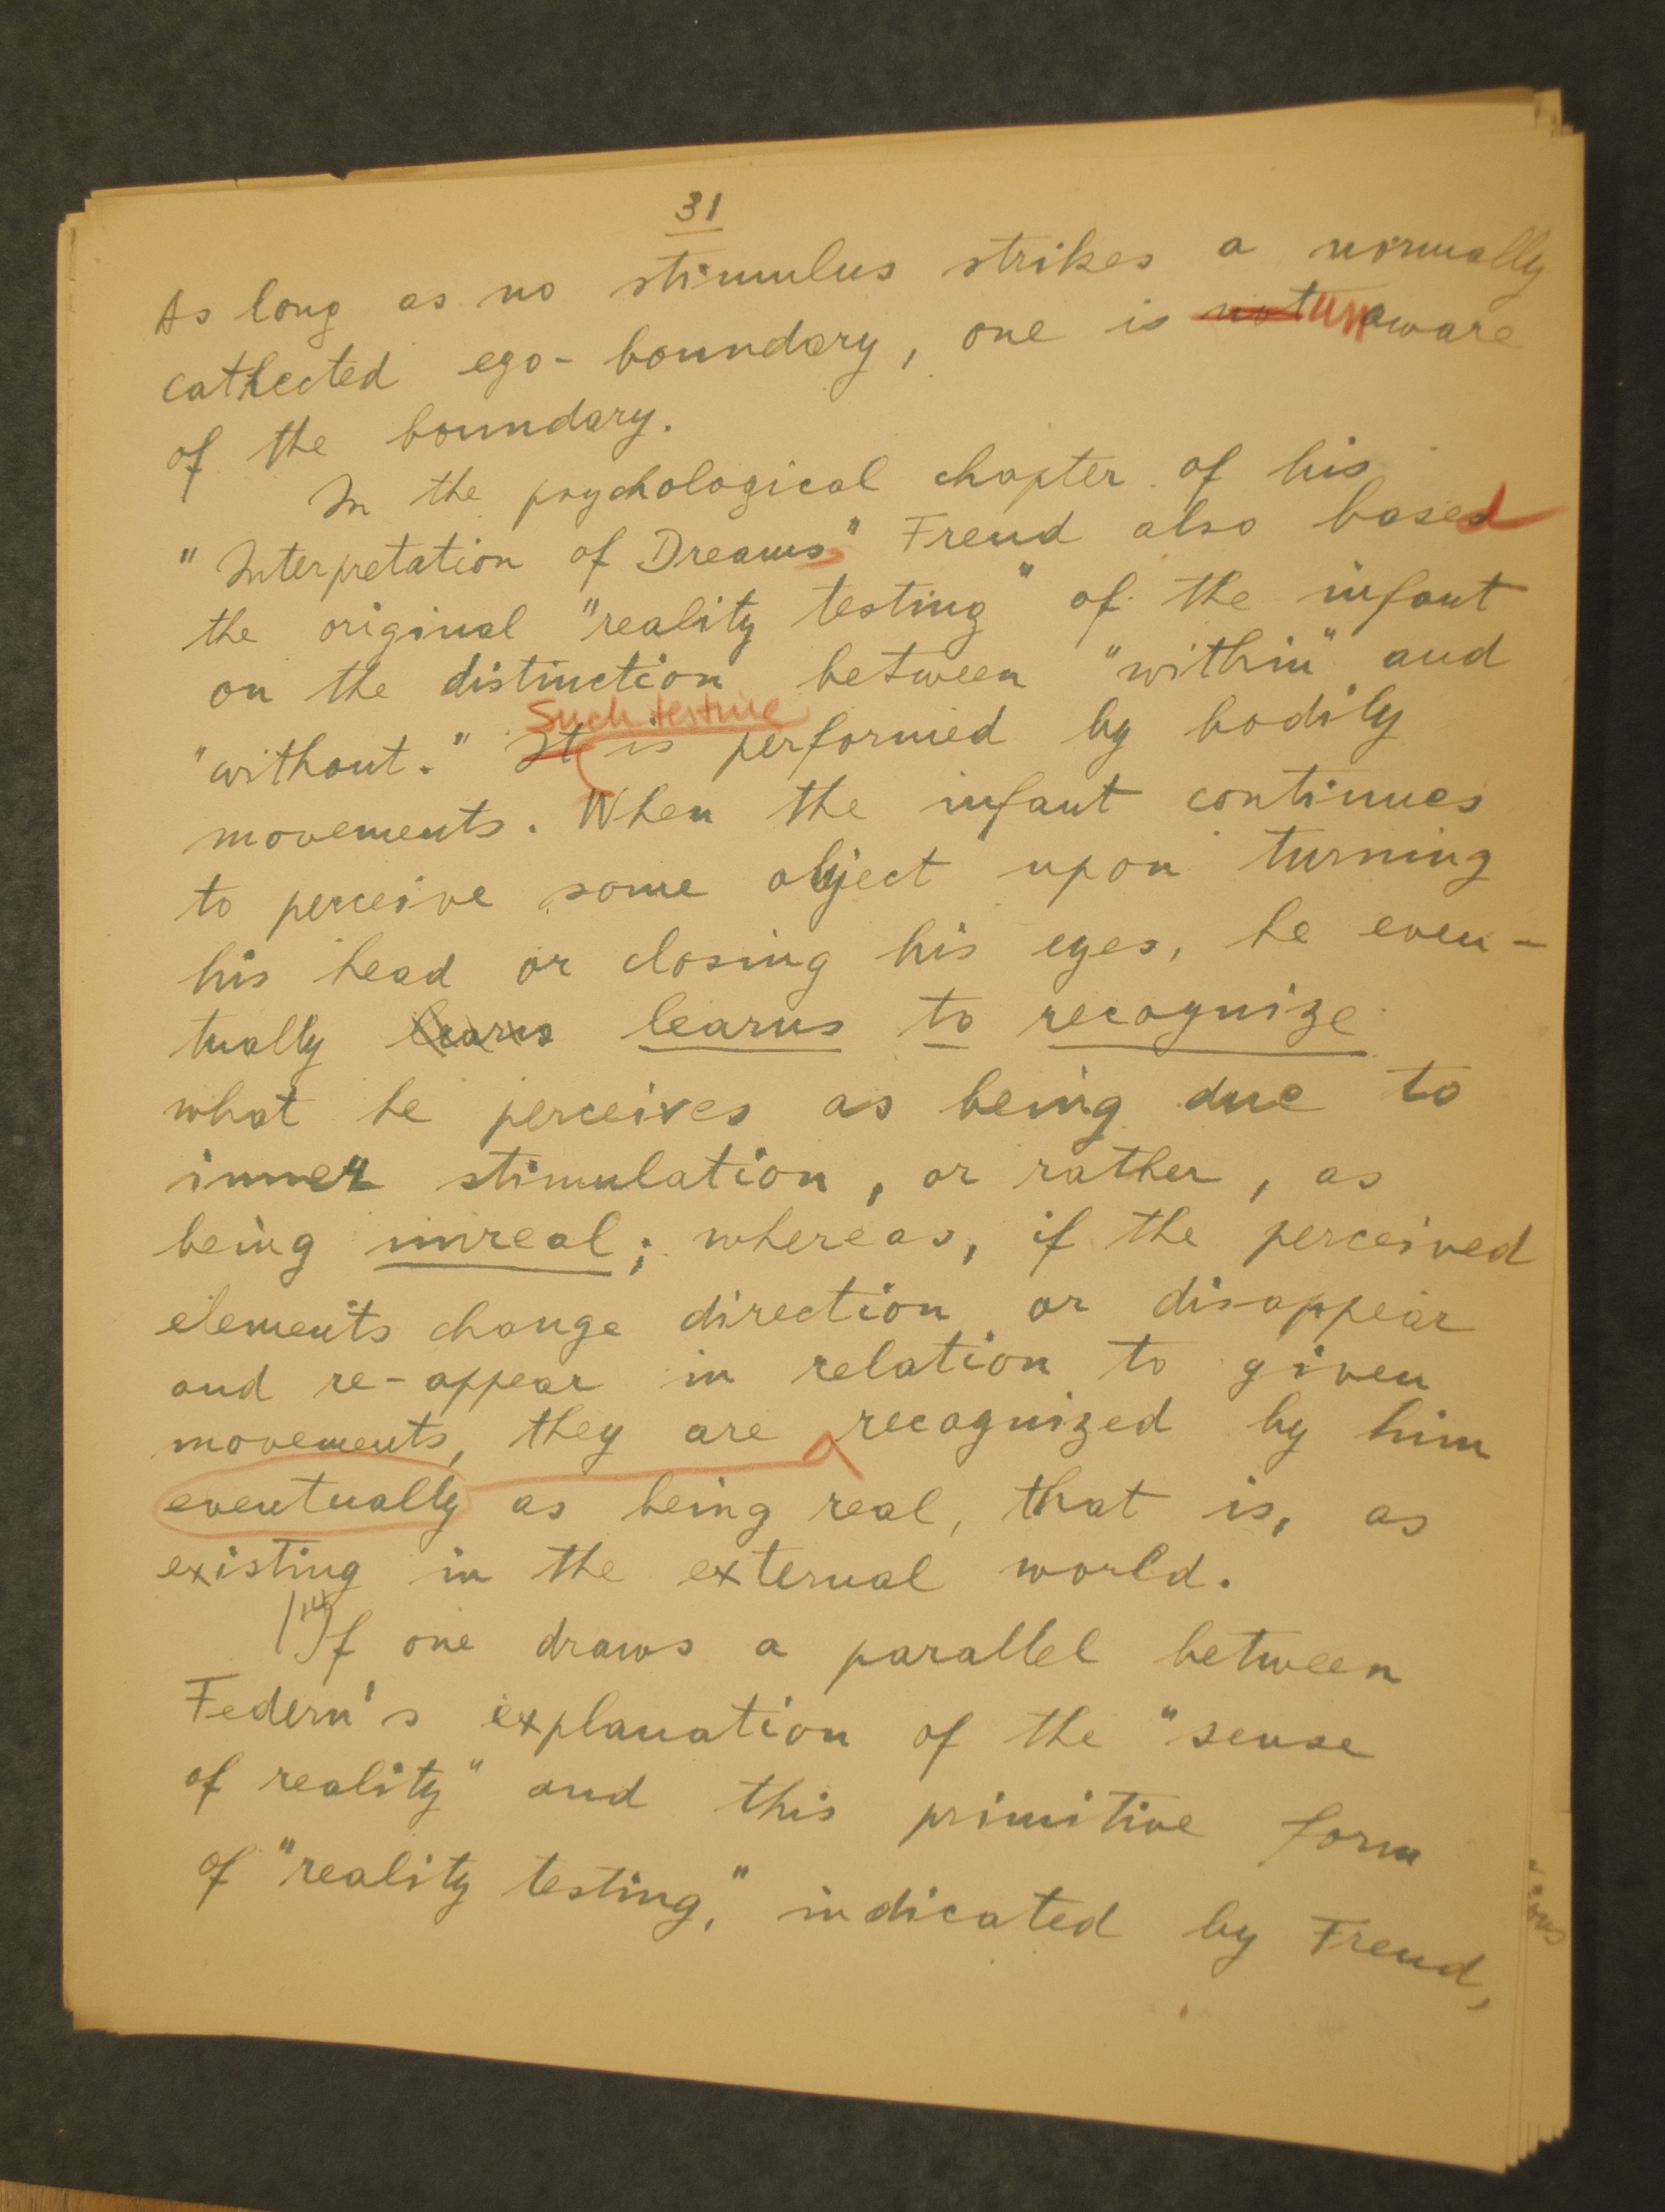 31
As long as no stimulus strikes a normally
cathected ego-boundary, one is not unaware
of the boundary.
In the psychological chapter of his
"Interpretation of Dreams" Freud also based
the original "reality testing" of the infant
on the distinction between "within" and
Such testing
"without." It is performed by bodily
movements. When the infant continues
to perceive some object upon turning
his head or closing his eyes, he even-
tually learns learns to recognize
what he perceives as being due to
inner stimulation, or rather, as
being unreal; whereas, if the perceived
elements change direction or disappear
and re-appear in relation to given
movements, they are recognized by him
eventually as being real, that is, as
existing in the external world.
If one draws a parallel between
Federn's explanation of the "sense
of reality" and this primitive form
of "reality testing," indicated by Freud,